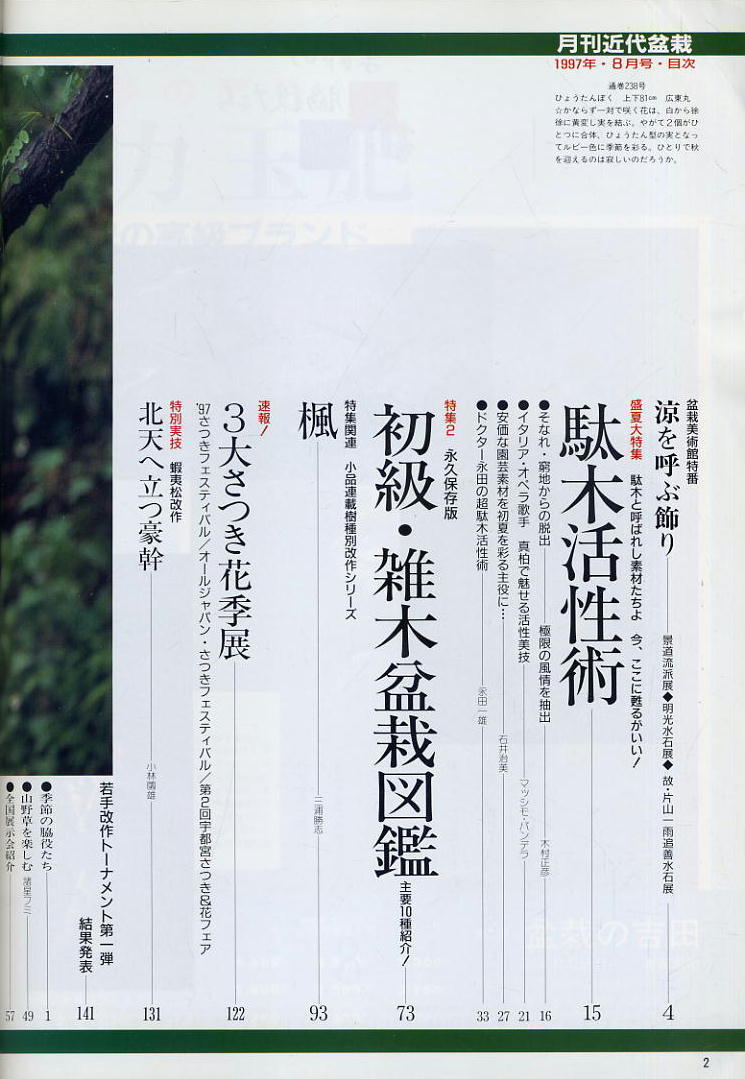 月刊近代盆栽
1997年・8月号・目次
通巻238号
ひょうたんぼく 上下81cm 広東丸
☆かならず一対で咲く花は、白から徐
徐に黄変し実を結ぶ。やがて2個がひ
とつに合体、ひょうたん型の実となっ
てルビー色に季節を彩る。ひとりで秋
を迎えるのは寂しいのだろうか。
盆栽美術館特番
涼を呼ぶ飾り 景道流派展◆明光水石展◆故・片山一雨追善水石展 4
盛夏大特集 駄木と呼ばれし素材たちよ 今、ここに甦るがいい!
駄木活性術 15
●そなれ・窮地からの脱出 極限の風情を抽出 木村正彦 16
●イタリア・オペラ歌手 真柏で魅せる活性美技 マッシモ・バンデラ 21
●安価な園芸素材を初夏を彩る主役に… 石井治美 27
●ドクター永田の超駄木活性術 永田一雄 33
特集2 永久保存版
初級・雑木盆栽図鑑 主要10種紹介! 73
特集関連 小品連載樹種別改作シリーズ
楓 三浦勝志 93
速報!
3大さつき花季展 122
'97さつきフェスティバル/オールジャパン・さつきフェスティバル/第2回宇都宮さつき&花フェア
特別実技 蝦夷松改作
北天へ立つ豪幹 小林國雄 131
若手改作トーナメント第一弾
結果発表 141
●季節の脇役たち 1
●山野草を楽しむ 諸星フミ 49
●全国展示会紹介 57
2